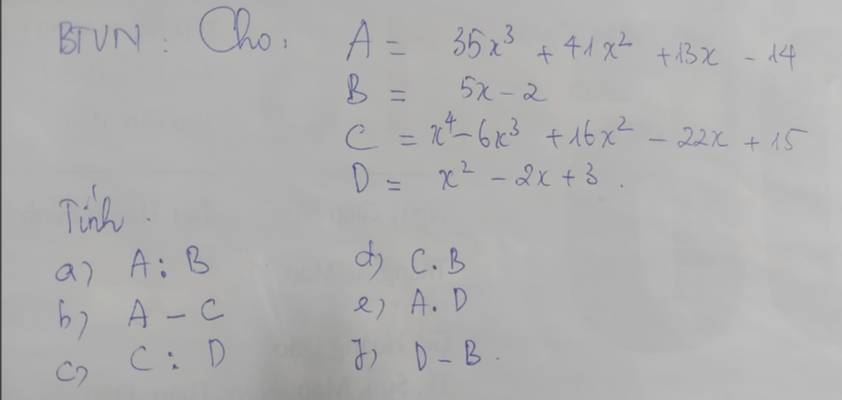 BTVN : Cho: A = 35x³ + 41x² + 13x - 14
B = 5x - 2
C = x⁴ - 6x³ + 16x² - 22x + 15
D = x² - 2x + 3.
Tính.
a) A : B d) C.B
b) A - C e) A.D
c) C : D f) D - B.